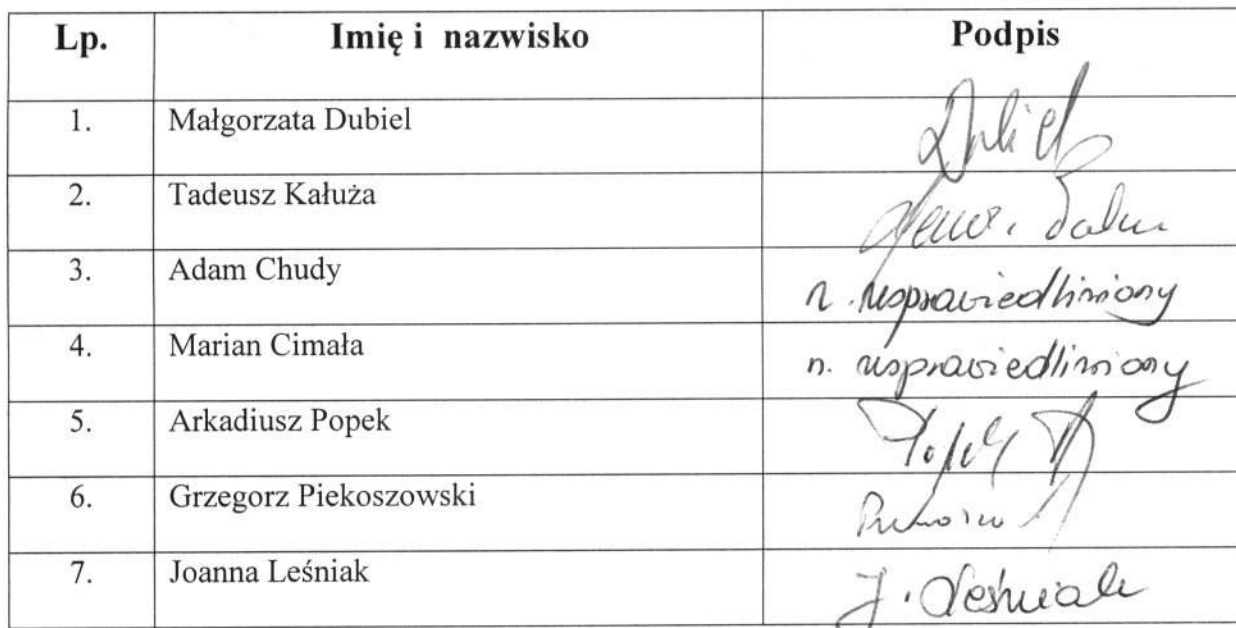 Lp. Imię i nazwisko Podpis
1. Małgorzata Dubiel Dubiel
2. Tadeusz Kałuża
3. Adam Chudy n. usprawiedliwiony
4. Marian Cimała n. usprawiedliwiony
5. Arkadiusz Popek Popek A
6. Grzegorz Piekoszowski
7. Joanna Leśniak J. Leśniak